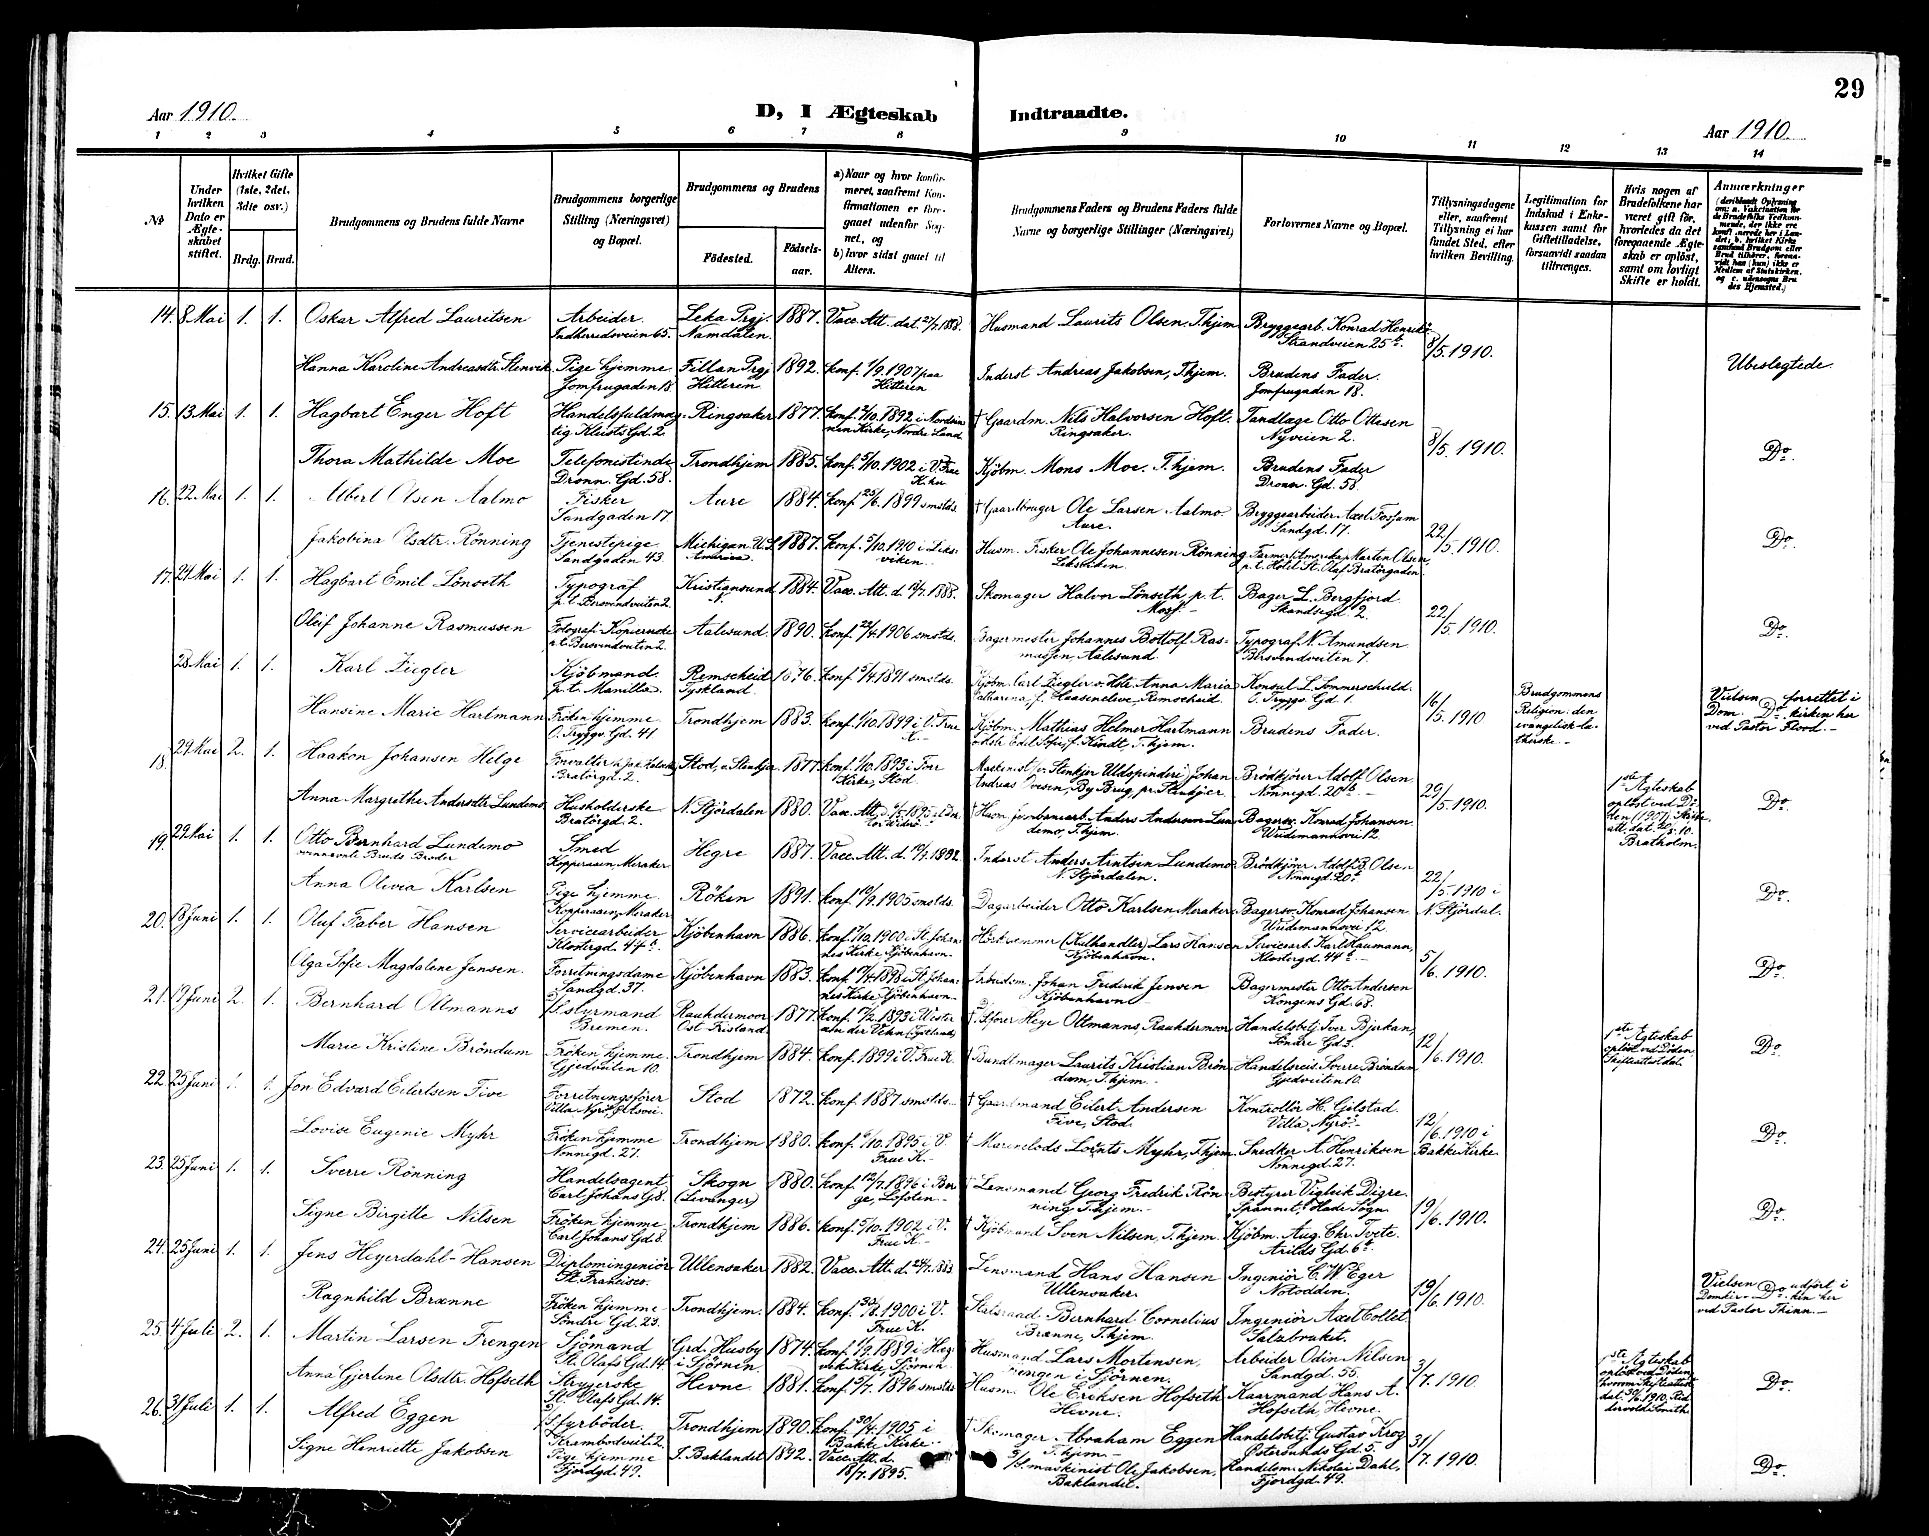 29
Aar 1910.
D, I Ægteskab
Indtraadte.
Aar 1910.
1 2 3 4 5 6 7 8 9 10 11 12 13 14
No
Under hvilken Dato er Ægteskabet stiftet.
Hvilket Gifte (1ste, 2det, 3die osv.)
Brdg. Brud.
Brudgommens og Brudens fulde Navne
Brudgommens borgerlige Stilling (Næringsvei) og Bopæl.
Brudgommens og Brudens
Födested.
Födselsaar.
a) Naar og hvor konfirmeret, saafremt Konfirmationen er foregaaet udenfor Sognet, og
b) hvor sidst gaaet til Alters.
Brudgommens Faders og Brudens Faders fulde Navne og borgerlige Stillinger (Næringsvei)
Forlovernes Navne og Bopæl.
Tillysningsdagene eller, saafremt Tillysning ei har fundet Sted, efter hvilken Bevilling.
Legitimation for Indskud i Enkekassen samt for Giftetilladelse, forsaavidt saadan tiltrænges.
Hvis nogen af Brudefolkene har været gift før, hvorledes da det foregaaende Ægteskab er opløst, samt om lovligt Skifte er holdt.
Anmærkninger
14. 8. Mai 1. 1. Oskar Alfred Lauritsen Arbeider Leka Prgj. 1887. Vacc. Att. dat. Husmand Laurits Olsen, T.hjem Bryggearb. Konrad Henriks.
Indherredsveien 65. Namdalen. Strandveien 25 8/5. 1910.
Hanna Karoline Andreasdtr. Stenvik Pige hjemme Fillan Prgj 1892. konf. 1/9. 1907 paa Inderst Andreas Jakobsen, T.hjem. Brudens Fader. Ubeslegtede.
Jomfrugaden 18 Hitteren Hitteren Jomfrugaden 18.
15. 13. Mai 1. 1. Hagbart Enger Hoft Handelsfuldmæg- Ringsaker 1877. 1892 i Nordsin- † Gaardm. Nils Halvorsen Hoft. Tandlæge Otto Ottesen
tig Kjists Gd. 2. nen Kirke, Nordre Land Ringsaker. Nyveien 2. 8/5. 1910. Do.
Thora Mathilde Moe Telefonistinde Trondhjem 1885. konf. 5/10. 1902 i V. Frue Kjöbm. Mons Moe. T.hjem. Brudens Fader
Dronn. Gd. 58. Dronn. Gd. 58.
16. 22. Mai 1. 1. Albert Olsen Aalmo Fisker Aure 1884. konf. 25/6. 1899 smstds. † Gaardbruger Ole Larsen Aalmo Bryggearbeider Axel Fossum
Sandgaden 17. Aure. Sandgd. 17. 22/5. 1910. Do.
Jakobina Olsdtr. Rönning Tjenestepige Michigan U.S. 1887. konf. 5/10. 1910 i Leks- Husm. Fisker Ole Johannesen Rönning Farmer i Amerika Martin Olsen,
Sandgaden 43. Amerika viken. Leksviken p.t. Hotel St. Olaf Bratörgaden
17. 24. Mai 1. 1. Hagbart Emil Lönseth Typograf Kristiansund 1884. Vacc. Att. d. 1888. Skomager Halvor Lönseth p. t. Bager L. Bergfjord.
p. t. Bersvendveiten 2 N. Mosj. Skandsegd. 2. 22/5. 1910. Do.
Oleif Johanne Rasmussen Aalesund. 1890. konf. 22/4. 1906 smstds. Bagermester Johannes Bottolf Ras- Typograf N. Amundsen
p. t. Bersvendveiten 2. mussen, Aalesund. Bersvendveiten 7.
28. Mai 1. 1. Karl Ziegler Kjöbmand Remscheid 1876. konf. 5/4. 1891 smstds. Kjöbm. Carl Ziegler o. Hstr. Anna Maria Konsul L. Sommerschield.
p. t. Manilla. Tyskland. Catharina, f. Haasenclever, Remscheid. O. Trygv. Gd. 1. 16/5. 1910 Brudgommens Religion: den evangelisk-lutherske.- Vielsen forrettet i Dom- Do. kirken her ved Pastor Flood.-
Hansine Marie Hartmann Fröken hjemme Trondhjem 1883. konf. 1/10. 1899 i V. Frue Kjöbm. Mathias Helmer Hartmann Brudens Fader.
O. Trygv. Gd. 41 K.- Edel Sofie, f. Kindt, T.hjem.
18. 29. Mai 2. 1. Haakon Johansen Helge Stod, v. Stenkjer 1877. konf. 1/10. 1893 i For Maskinist (v. Stenkjer Uldspinderi) Johan Brödkjörer Adolf Olsen
Bratörgd. 2. Kirke, Stod By Brug, pr. Stenkjer. Nonnegd. 20. 29/5. 1910. 1ste Ægteskab oplöst ved Döden (1907) Skifteatt. dat. 20/5. 10. Bratholm. Do.
Anna Margrethe Andersdtr. Lundemo Husholderske N. Stjördalen 1880. Vacc. Att. † Husm. Jernbanearb. Anders Andersen Lun- Bagersv. Konrad Johansen
Bratörgd. 2. demo, T.hjem. Wudemannsvei 12
19. 29. Mai 1. 1. Otto Bernhard Lundemo Smed Hegre 1887. Vacc. Att. d. 1892 Inderst Anders Arntsen Lundemo Brödkjörer Adolf B. Olsen
ovennævnte Bruds Broder Kopperaaen, Meraker N. Stjördalen. Nonnegd. 20 22/5. 1910 i N. Stjördal. Do.
Anna Olivia Karlsen Pige hjemme. Röken 1891. konf. 1905 smstds. Dagarbeider Otto Karlsen, Meraker. Bagersv. Konrad Johansen
Kopperaaen, Meraker Wudemannsvei 12.
20. 18 Juni 1. 1. Oluf Faber Hansen Servicearbeider Kjöbenhavn 1886. 1900 i St. Johan- (Kulhandler) Lars Hansen Servicearb. Karl Haumann,
Klostergd. 44 nes Kirke Kjöbenhavn Kjöbenhavn. Klostergd. 44 5/6. 1910. Do.
Olga Sofie Magdalene Jensen. Forretningsdame Kjöbenhavn 1883. 1898 i St. Johan- Arbeidsm. Johan Fredrik Jensen Bagermester Otto Andersen
Sandgd. 37. nes Kirke Kjöbenhavn Kjöbenhavn Kongens Gd. 68.
21. 19 Juni 2. 1. Bernhard Oltmanns D/S. styrmand Rauhdermoor 1877. konf. 1893 i Wester- Heye Oltmanns, Rauhdermoor Handelsbetj. Iver Bjerkan,
Bremen. Ost Frisland am der Vehn (Tyskland) Söndre Gd. 3. 12/6. 1910. 1ste Ægteskab oplöst ved Döden Do.
Marie Kristine Bröndum Fröken hjemme. Trondhjem 1884. konf. 1899 i V. Frue K. † Bundtmager Laurits Kristian Brön- Handelsreis. Sverre Bröndum
Gjedveiten 10. dum, T.hjem.- Gjedveiten 10.
22. 25 Juni 1. 1. Jon Edvard Eilertsen Five Forretningsförer Stod 1872. konf. 1887 smstds. † Gaardmand Eilert Andersen Kontrollör H. Gjelstad
Five, Stod. Villa Nyrö.- 12/6. 1910 i Bakke Kirke. Do.
Lovise Eugenie Myhr Fröken hjemme Trondhjem 1880. konf. 6/10. 1895 i V. Marinelods Lorents Myhr, T.hjem. Snedker A. Henriksen
Nonnegd. 27. Frue K. Nonnegd. 27.
23. 25 Juni 1. 1. Sverre Rönning Handelsagent Skogn 1880. konf. 12/7. 1896 i Bor- † Lensmand Georg Fredrik Rön- Bestyrer Vigleik Digre.
Carl Johans G. 8. (Levanger) ge, Lofoten. ning T.hjem.- Spannet, Lade Sogn. 19/6. 1910. Do.
Signe Birgitte Nilsen Fröken hjemme Trondhjem 1886. konf. 5/10. 1902 i V. † Kjöbmand Sven Nilsen, T.hjem. Kjöbm. Aug. Chr. Tvete.
Carl Johans Gd. 8. Frue K.- Arilds Gd. 6
24. 25 Juni 1. 1. Jens Heyerdahl-Hansen Diplomingeniör Ullensaker 1882. Vacc. Att. d. Lensmand Hans Hansen Ingeniör C. W. Eger
St. Francisco. Ullensaker. Notodden. 19/6. 1910. Vielsen udfört i Domkir- Do. ken her ved Pastor Thinn.-
Ragnhild Brænne Fröken hjemme Trondhjem. 1884. konf. 30/8. 1900 i V. Statsraad Bernhard Cornelius Ingeniör Axel Collet
Söndre Gd. 23. Frue K. Brænne, T.hjem. Salzbruket.
25. 4 Juli 2. 1. Martin Larsen Frengen Sjömand Grd. Husby 1874. konf. 1/9. 1889 i Heg- Husmand Lars Mortensen, Arbeider Odin Nilsen
St. Olafs Gd. 14. i Sjörnin. vik Kirke, Sjörnin Frengen i Sjörnen. Sandgd. 55. 3/7. 1910. 1ste Ægteskab oplöst ved Döden Do.
Anna Gjertine Olsdtr. Hofseth Strygerske Hevne 1881. 1896 smstds Husm. Ole Eriksen Hofseth Kaarmand Hans A.
St. Olafs Gd. 14. Hevne. Hofseth, Hevne.
26. 31 Juli 1. 1. Alfred Eggen D/S. fyrböder. Trondhjem 1890. konf. 30/4. 1905 i † Skomager Abraham Eggen Handelsbetj. Gustav Krog
Krambodveit. 2. Bakke Kirke.- T.hjem.- Ostersunds Gd. 5. 31/7. 1910. Do.
Signe Henriette Jakobsen Pige hjemme I. Baklandet 1892. Vacc. Att. d. D/S. maskinist Ole Jakobsen, Handelsm. Nikolai Dahl,
Fjordgd. 49. 18/7. 1895. Baklandet. Fjordgd. 49.